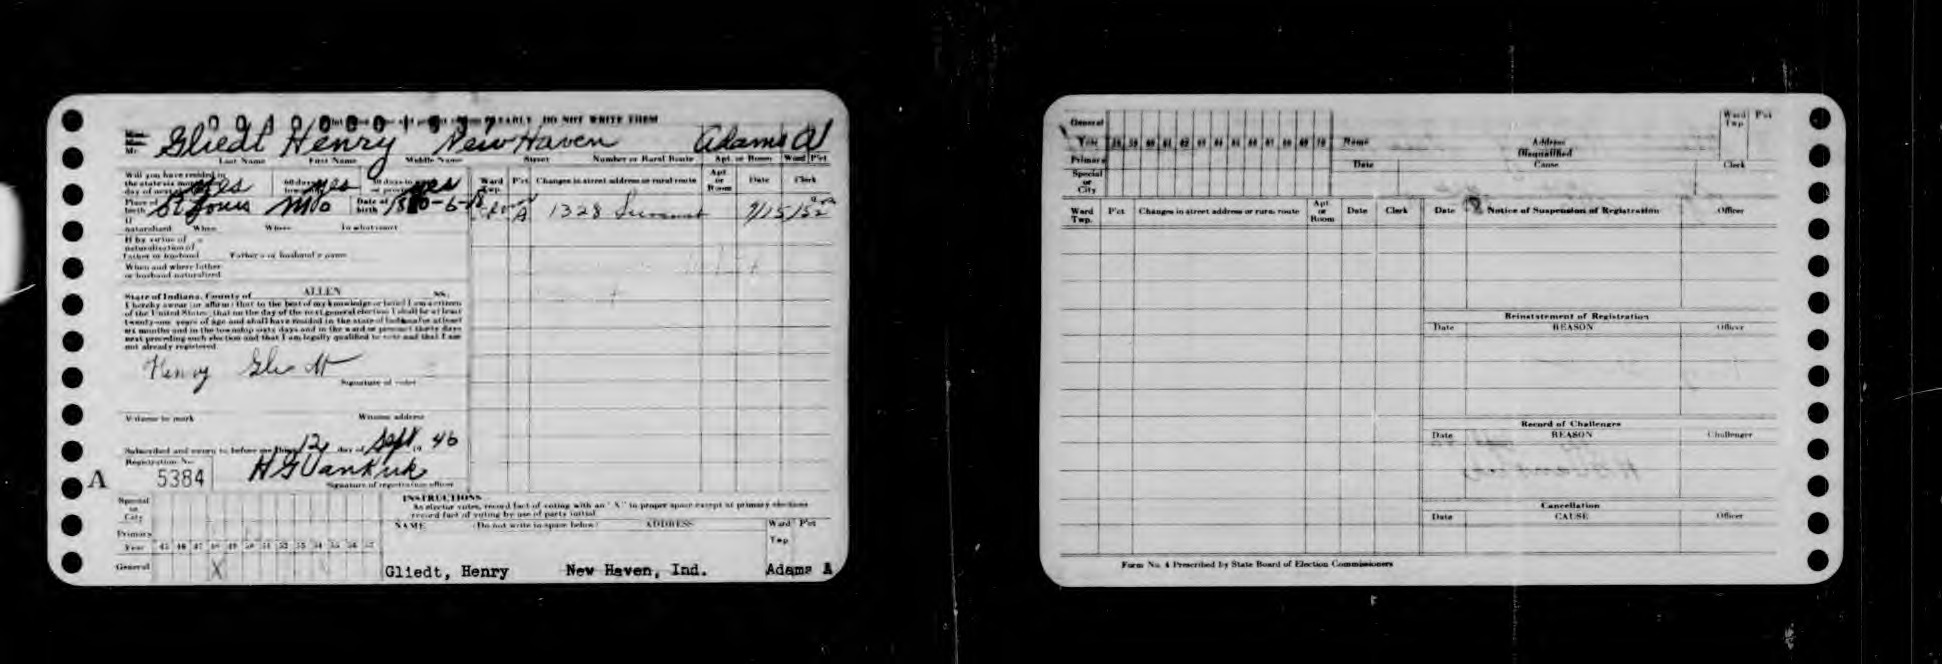 DO NOT WRITE THEM
Gliedt Henry New Haven Adams A
Last Name First Name Middle Name Street Number or Rural Route Apt. or Room Ward P'ct
Will you have resided in the state six months yes yes yes
Ward Twp. P'ct Changes in street address or rural route Apt. or Room Date Clerk
Place of birth St Louis Mo Date of birth
A 1328 Summit 9/15/52
If naturalized When Where In what court
If by virtue of naturalization of
Father or husband Father's or husband's name
When and where father
or husband naturalized
State of Indiana, County of ALLEN ss.:
I hereby swear (or affirm) that to the best of my knowledge or belief I am a citizen
of the United States; that on the day of the next general election I shall be at least
twenty-one years of age and shall have resided in the state of Indiana for at least
six months and in the township sixty days and in the ward or precinct thirty days
next preceding such election and that I am legally qualified to vote and that I am
not already registered.
Henry Gliedt
Signature of voter
Witness to mark Witness address
Subscribed and sworn to before me this 12 day of Sept 19 46
Registration No.
A 5384
Signature of registration officer
INSTRUCTIONS
As elector votes, record fact of voting with an "X" in proper space except at primary elections
record fact of voting by use of party initial.
NAME (Do not write in space below) ADDRESS Ward Twp. P'ct
Special or City
Primary
Year 45 46 47 48 49 50 51 52 53 54 55 56 57
General X
Gliedt, Henry New Haven, Ind. Adams A
General
Year 58 59 60 61 62 63 64 65 66 67 68 69 70 Name Address Ward Twp. P'ct
Disqualified
Primary Date Cause Clerk
Special or City
Ward Twp. P'ct Changes in street address or rural route Apt. or Room Date Clerk Date Notice of Suspension of Registration Officer
Reinstatement of Registration
Date REASON Officer
Record of Challenges
Date REASON Challenger
Cancellation
Date CAUSE Officer
Form No. 4 Prescribed by State Board of Election Commissioners